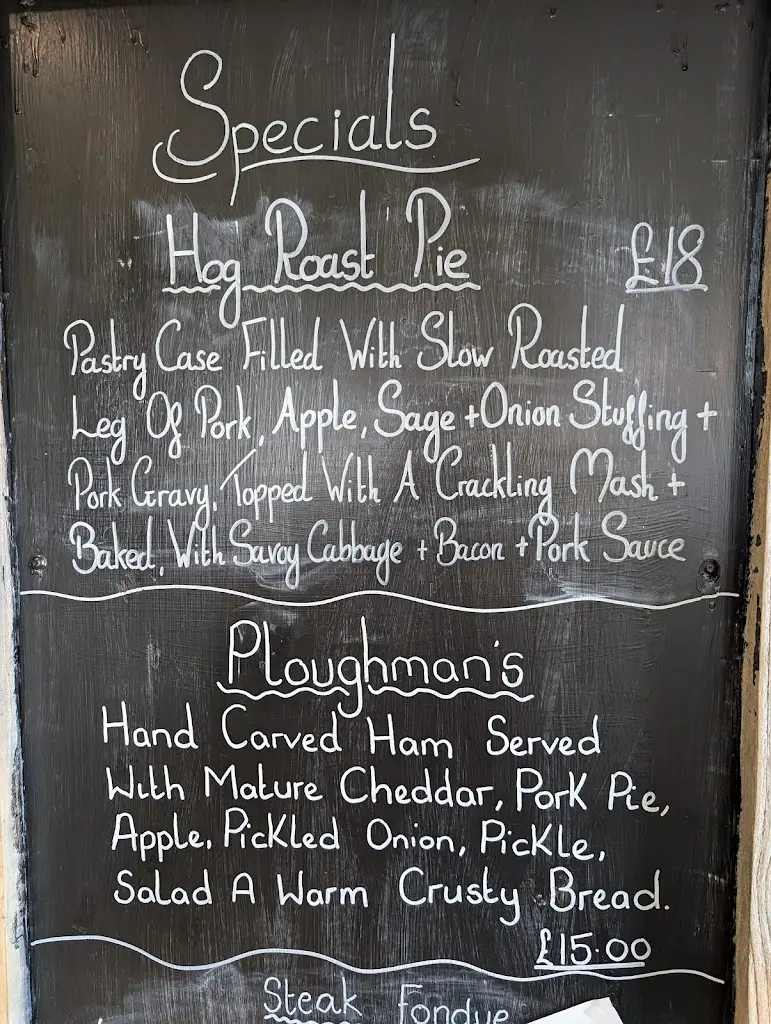 Specials
Hog Roast Pie £18
Pastry Case Filled With Slow Roasted
Leg Of Pork, Apple, Sage + Onion Stuffing +
Pork Gravy, Topped With A Crackling Mash +
Baked, With Savoy Cabbage + Bacon + Pork Sauce
Ploughman's
Hand Carved Ham Served
With Mature Cheddar, Pork Pie,
Apple, Pickled Onion, Pickle,
Salad A Warm Crusty Bread.
£15.00
Steak Fondue